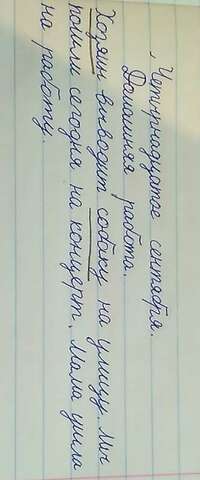 Четырнадцатое сентября.
Домашняя работа.
Хозяин выводит собаку на улицу. Мы
пошли сегодня на концерт. Мама ушла
на работу.